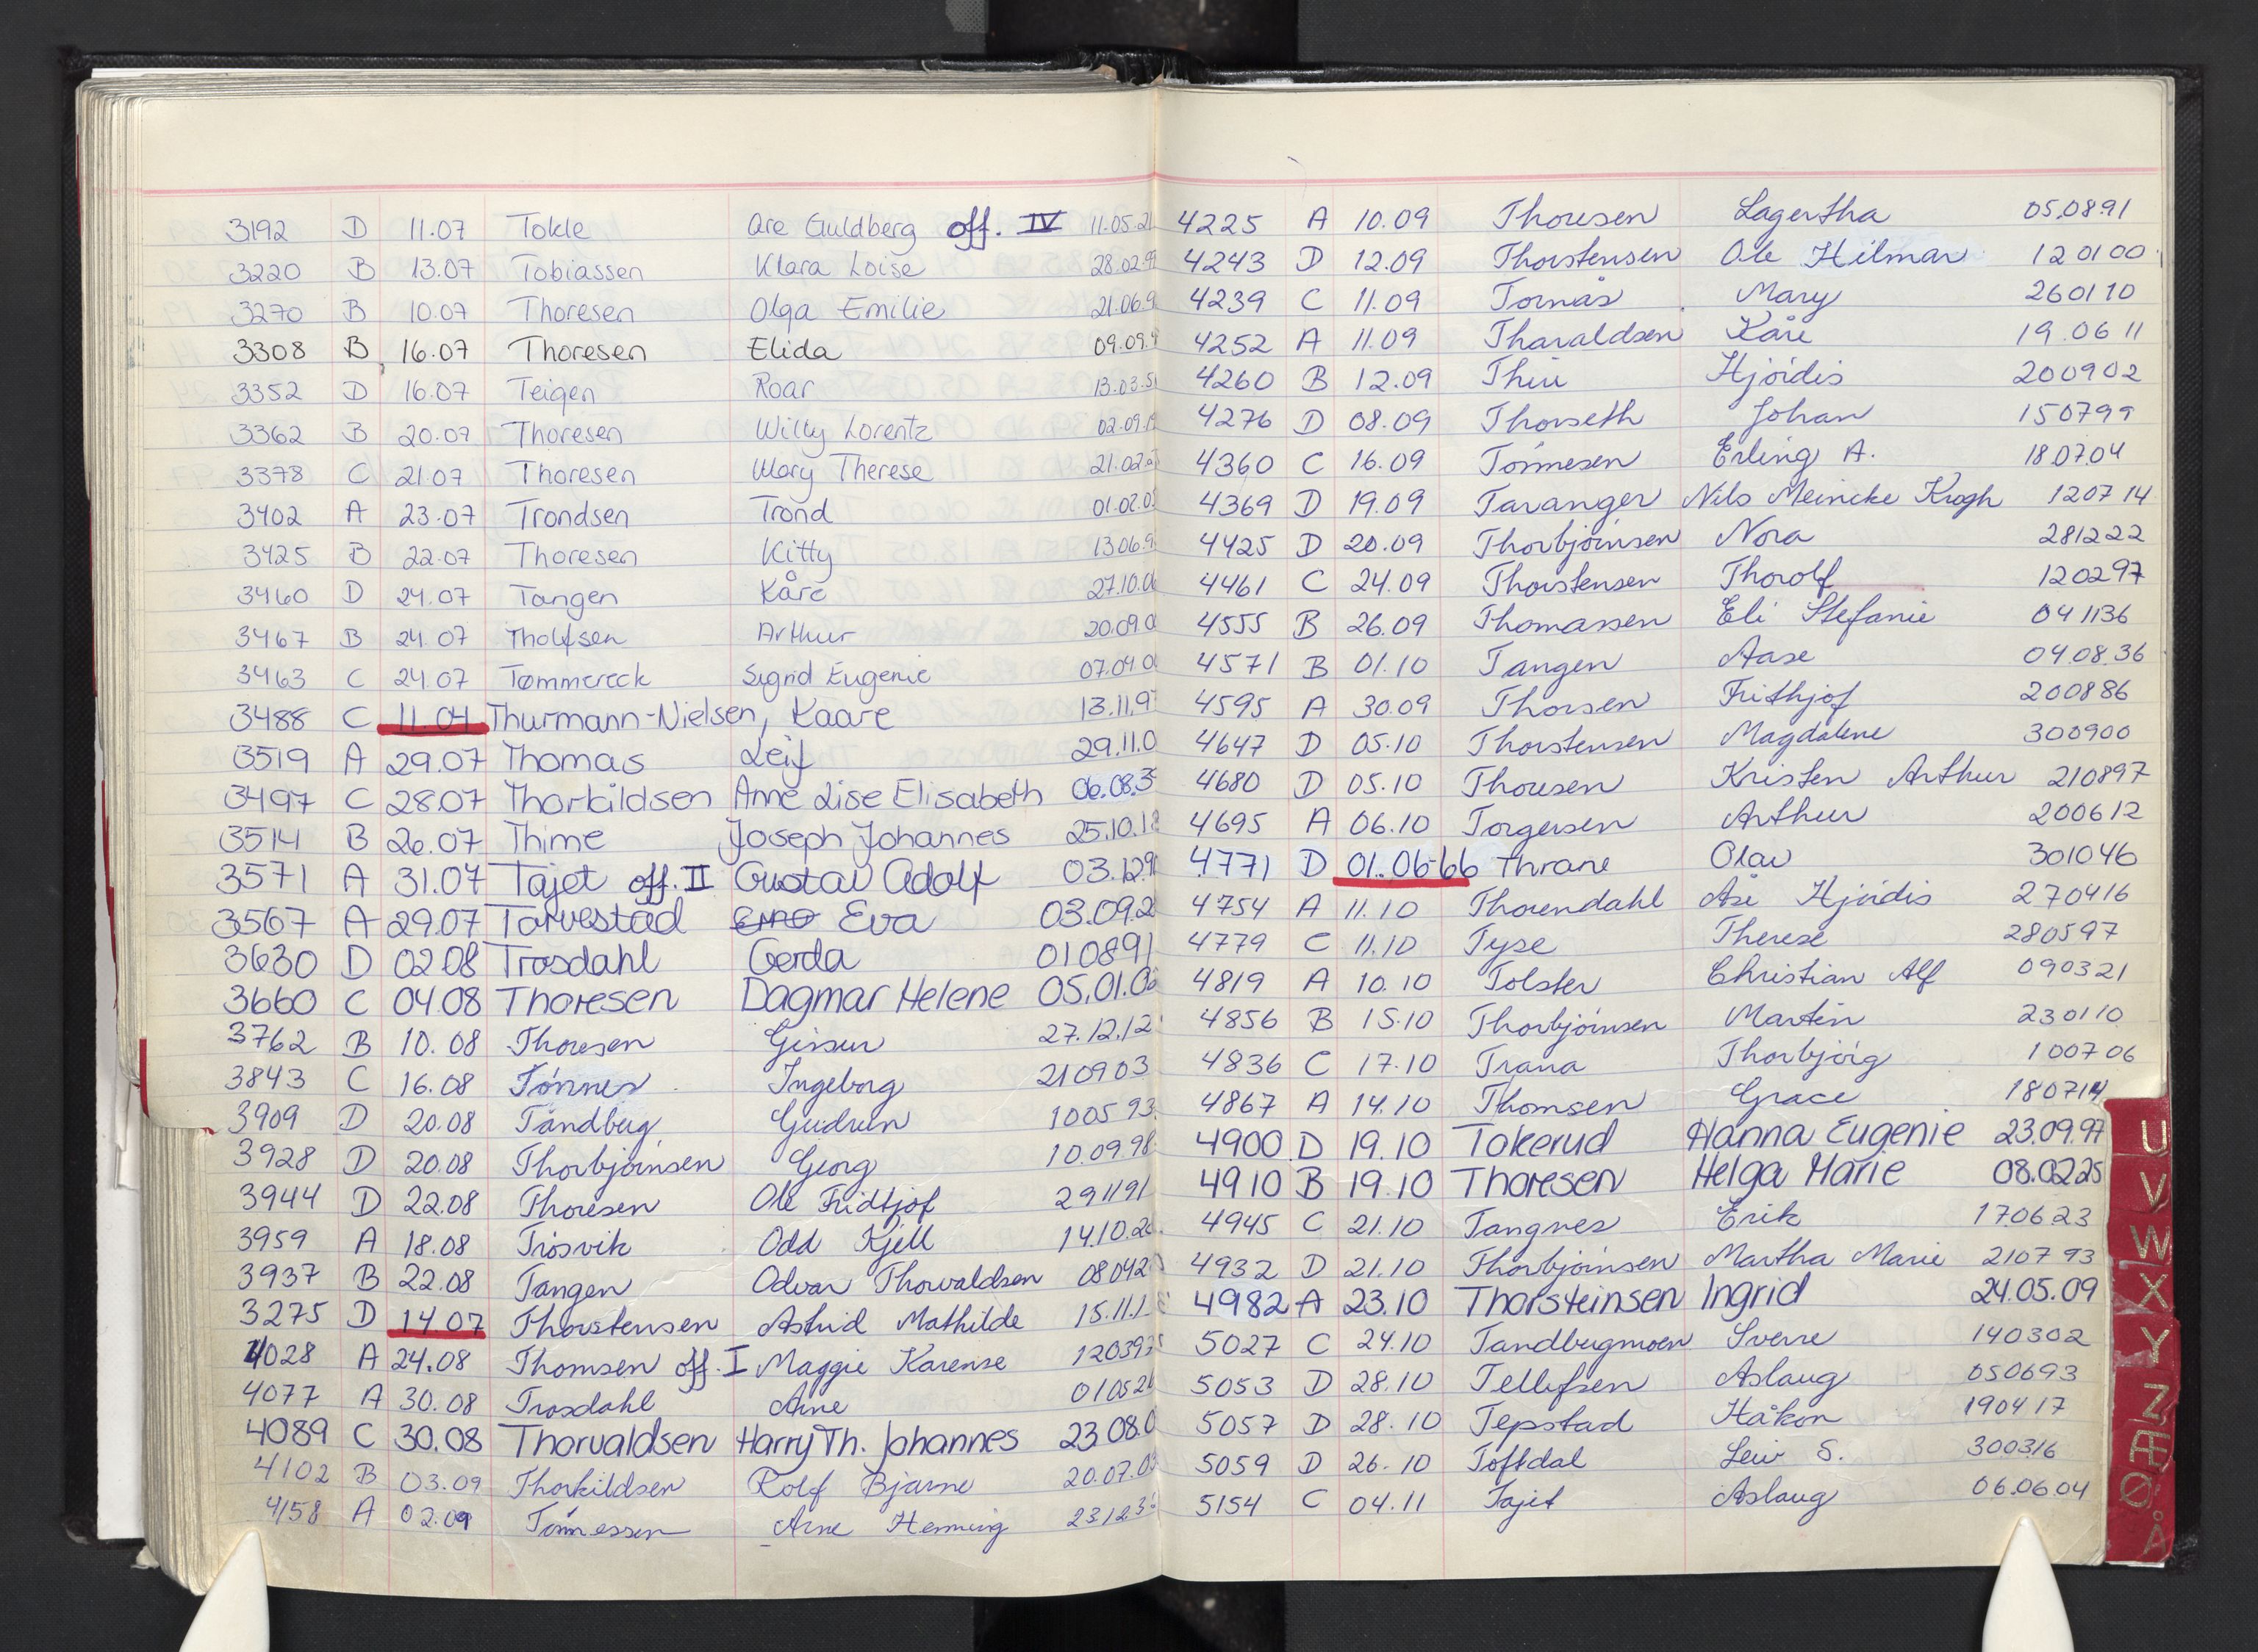 3192 D 11.07 Tokle Are Guldberg off. IV 11.05.21
3220 B 13.07 Tobiassen Klara Loise 28.02.9
3270 B 10.07 Thoresen Olga Emilie 21.06.9
3308 B 16.07 Thoresen Elida 09.09.9
3352 D 16.07 Teigen Roar 13.03.5
3362 B 20.07 Thoresen Willy Lorentz 02.09.1
3378 C 21.07 Thoresen Mary Therese 21.02.
3402 A 23.07 Trondsen Trond 01.02.0
3425 B 22.07 Thoresen Kitty 13.06.9
3460 D 24.07 Tangen Kåre 27.10.0
3467 B 24.07 Tholfsen Arthur 20.09.0
3463 C 24.07 Tømmereck Sigrid Eugenie 07.04.0
3488 C 11.04 Thurmann-Nielsen, Kaare 13.11.9
3519 A 29.07 Thomas Leif 29.11.0
3497 C 28.07 Thorkildsen Anne Lise Elisabeth 06.08.3
3514 B 26.07 Thime Joseph Johannes 25.10.18
3571 A 31.07 Tajet off. II Gustav Adolf 03.12.9
3567 A 29.07 Tarvestad Eva 03.09.2
3630 D 02.08 Trosdahl Gerda 010891
3660 C 04.08 Thoresen Dagmar Helene 05.01.0
3762 B 10.08 Thoresen 27.12.12
3843 C 16.08 Tönnes Ingeborg 210903
3909 D 20.08 Tandberg Gudrun 1005 93
3928 D 20.08 Thorbjørnsen Georg 10.09.98
3944 D 22.08 Thoresen Ole Fridtjof 291191
3959 A 18.08 Trosvik Odd Kjell 14.10.20
3937 B 22.08 Tangen Odvar Thorvaldsen 08042
3275 D 14.07 Thorstensen Astrid Mathilde 15.11.1
4028 A 24.08 Thomsen off. I Maggie Karense 120393
4077 A 30.08 Trosdahl Arne 010526
4089 C 30.08 Thorvaldsen Harry Th. Johannes 23 08.0
4102 B 03.09 Thorkildsen Rolf Bjarne 20.07.03
4158 A 02.09 Tönnessen Arne Henning 23123
4225 A 10.09 Thoresen Lagertha 05.08.91
4243 D 12.09 Thorstensen Ole Hilmar 120100
4239 C 11.09 Tornås Mary 260110
4252 A 11.09 Tharaldsen Kåre 19.06 11
4260 B 12.09 Hjördis 200902
4276 D 08.09 Thorseth Johan 150799
4360 C 16.09 Tönnesen Erling A. 18.07.04
4369 D 19.09 Taranger Nils Meincke Krogh 1207 14
4425 D 20.09 Thorbjörnsen Nora 281222
4461 C 24.09 Thorstensen Thorolf 120297
4555 B 26.09 Thomassen Eli Stefanie 041136
4571 B 01.10 Tangen Aase 04.08.36
4595 A 30.09 Thorsen Frithjof 200886
4647 D 05.10 Thorstensen Magdalene 300900
4680 D 05.10 Thoresen Kristen Arthur 210897
4695 A 06.10 Torgersen Arthur 200612
4771 D 01.06-66 Thrane Olav 301046
4754 A 11.10 Thorendahl Åse Hjördis 270416
4779 C 11.10 Tyse Therese 280597
4819 A 10.10 Tolster Christian Alf 090321
4856 B 15.10 Thorbjörnsen Martin 230110
4836 C 17.10 Trana Thorbjörg 100706
4867 A 14.10 Thomsen Grace 180714
4900 D 19.10 Tokerud Hanna Eugenie 23.09.97
4910 B 19.10 Thoresen Helga Marie 08.02.25
4945 C 21.10 Tangnes Erik 170623
4932 D 21.10 Thorbjörnsen Martha Marie 2107 93
4982 A 23.10 Thorsteinsen Ingrid 24.05.09
5027 C 24.10 Tandbergmoen Sverre 140302
5053 D 28.10 Tellefsen Aslaug 050693
5057 D 28.10 Tepstad Håkon 190417
5059 D 26.10 Toftdal Leiv S. 300316
5154 C 04.11 Tajet Aslaug 06.06.04
U
V
W
X
Y
Z
Æ
Ø
Å